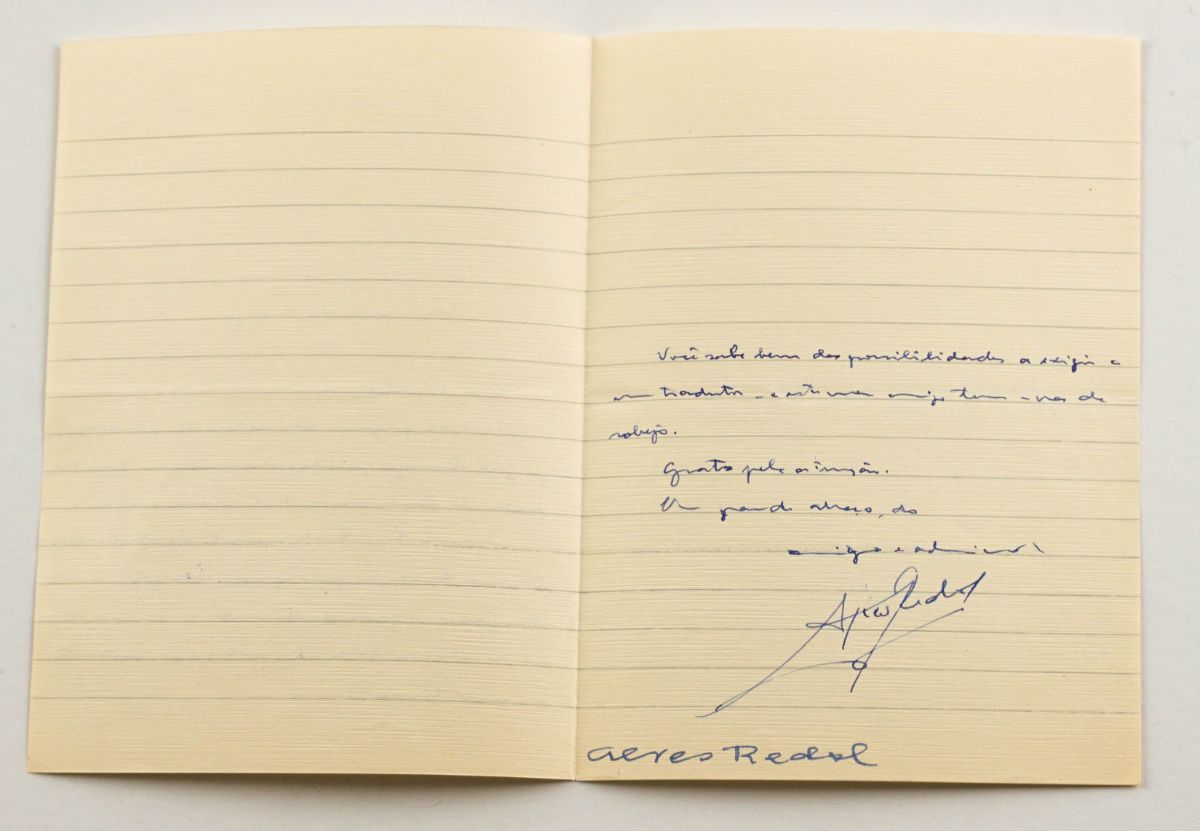 Você sabe bem das possibilidades a exigir a
um tradutor – e este meu amigo tem-nas de
sobejo.
Grato pela atenção.
Um grande abraço, do
amigo e admirador
Alves Redol
Alves Redol